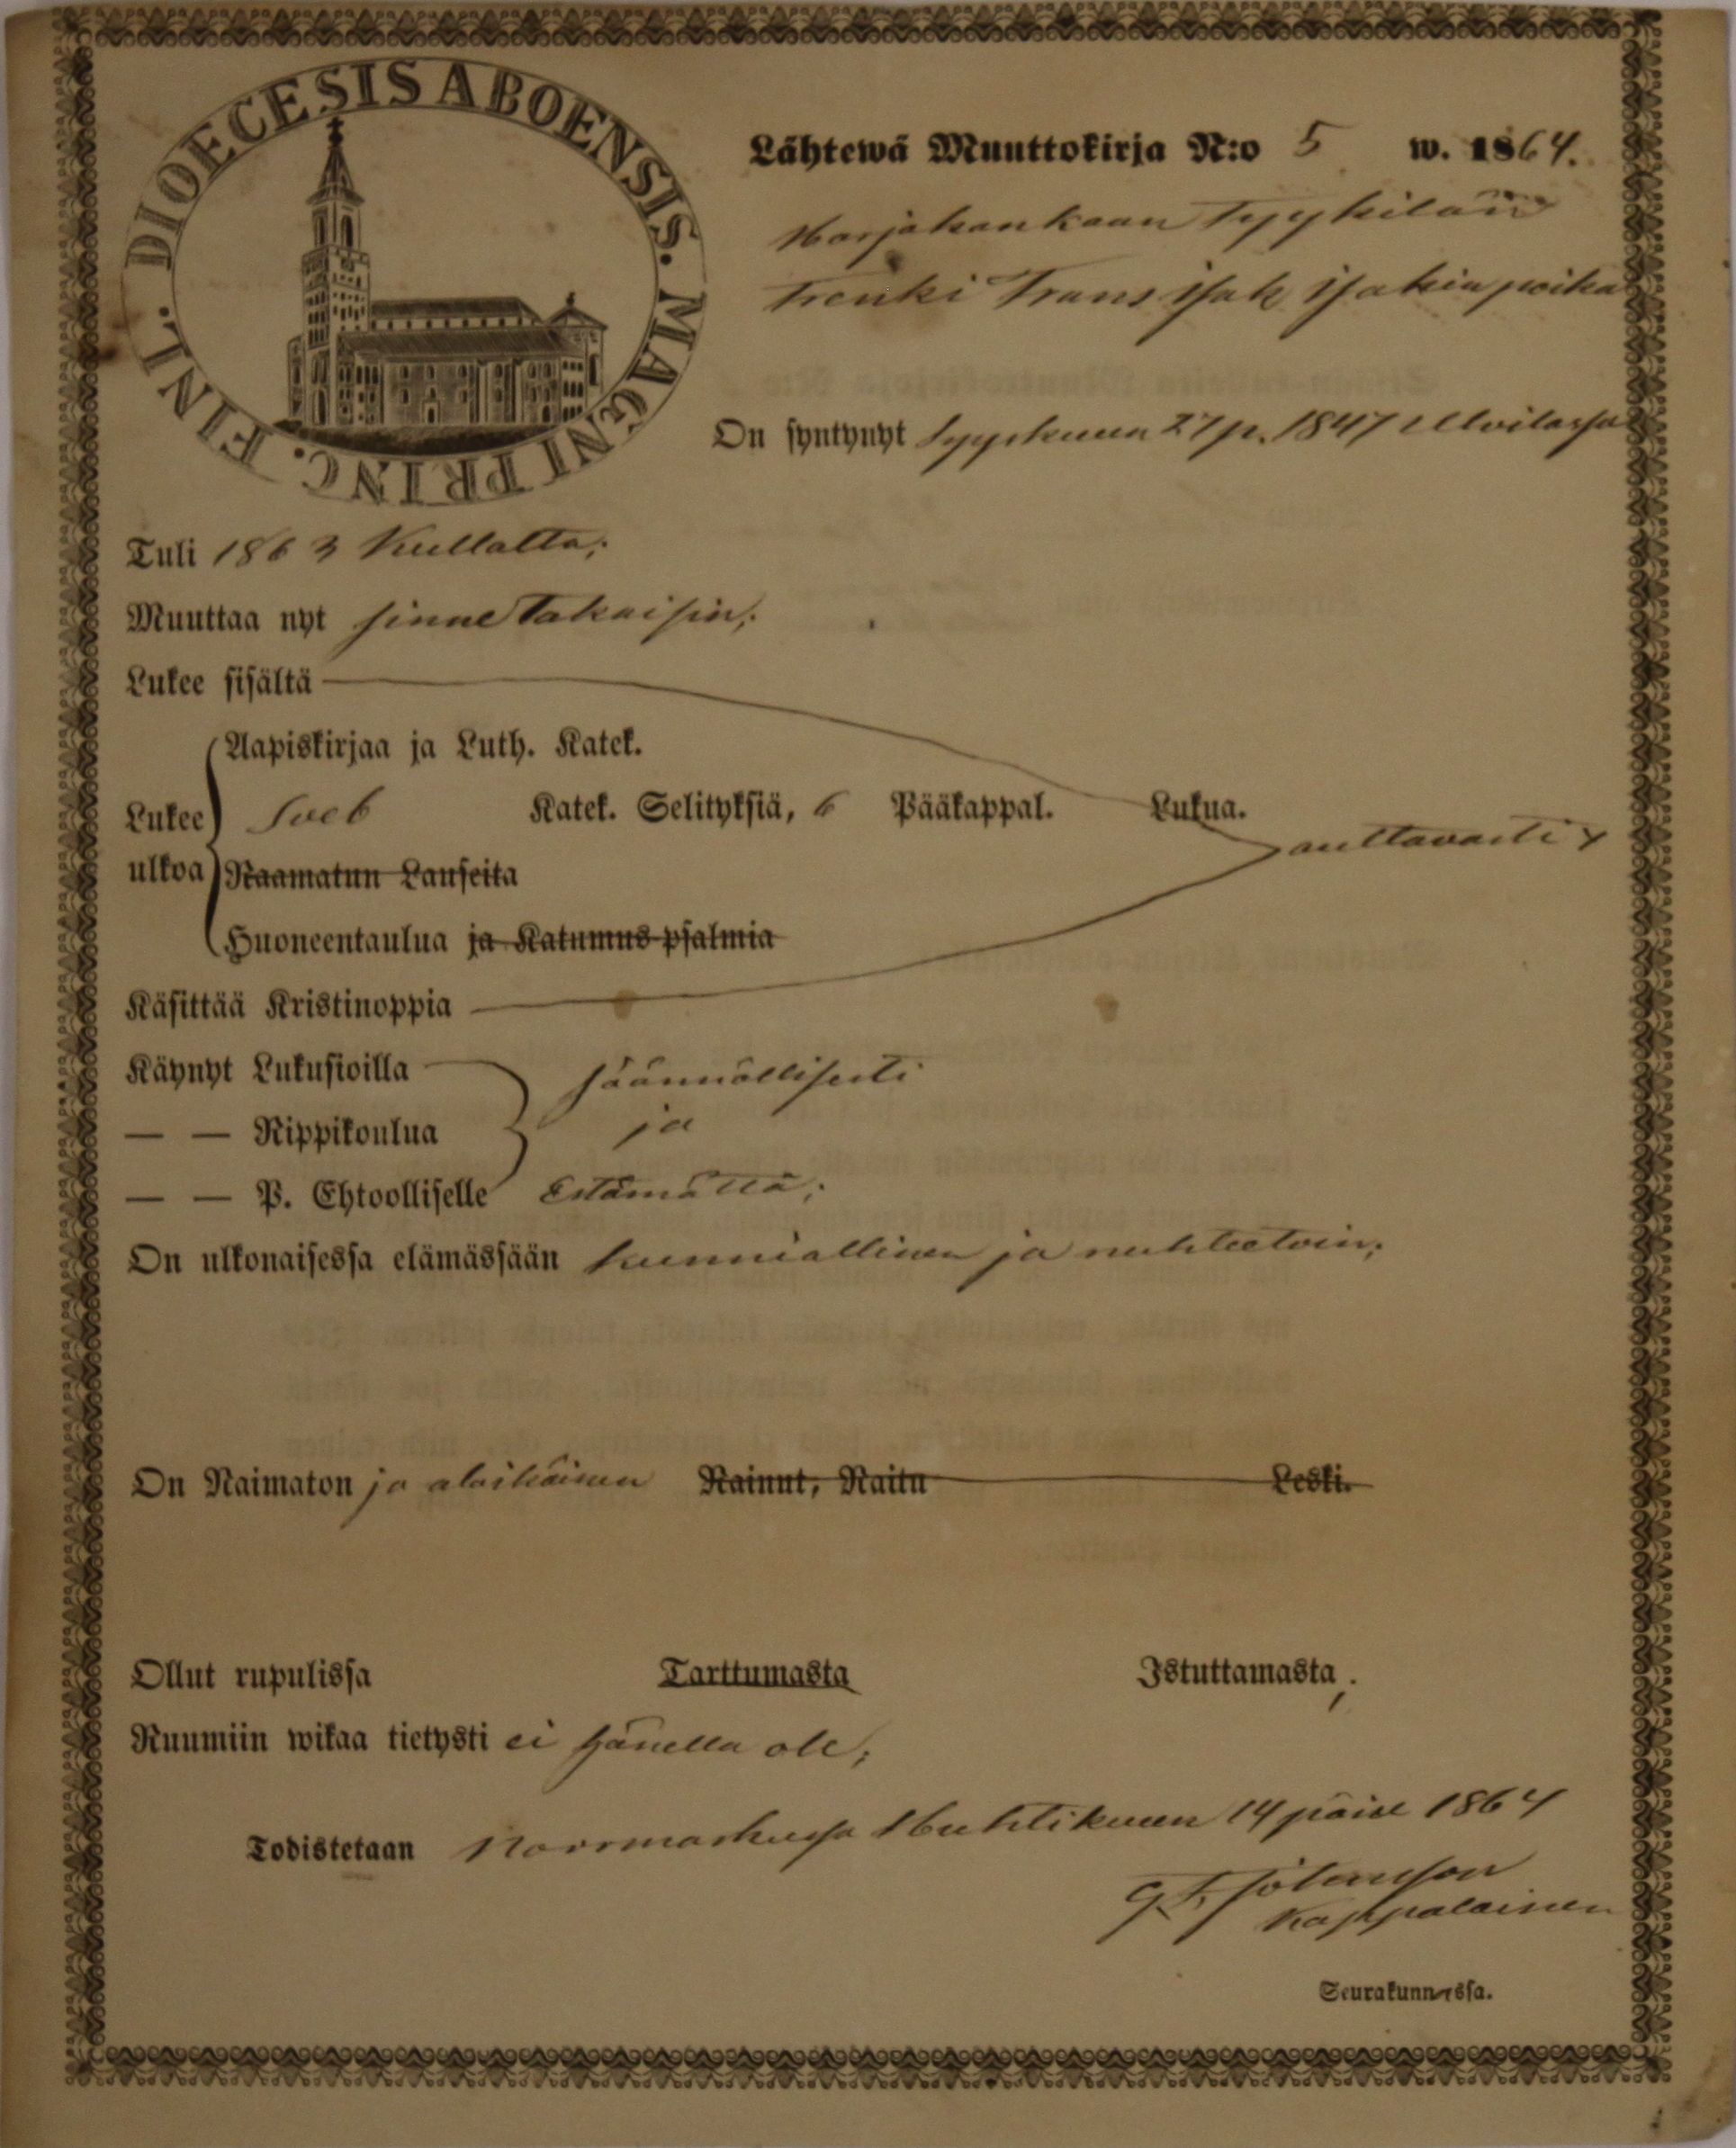 DIOECESIS ABOENSIS. MAGNI PRINC. FINL.
Lähtewä Muuttokirja N:o 5 w. 1864.
Harjakankaan Tyykilän
Trenki Frans Isak Isakin poika
On syntynyt Syyskuun 27 p. 1847 Ulvilassa
Tuli 1863 Kullalta;
Muuttaa nyt sinne takaisin;
Lukee sisältä
Aapiskirjaa ja Luth. Katek.
Lukee Sveb Katek. Selityksiä, 6 Pääkappal. Lukua. auttavasti
ulkoa Raamatun Lauseita
Huoneentaulua ja Katumus-psalmia
Käsittää Kristinoppia
Käynyt Lukusioilla säännöllisesti
— — Rippikoulua ja
— — P. Ehtoolliselle Estämättä;
On ulkonaisessa elämässään kunniallinen ja nuhteetoin;
On Naimaton ja alaikäinen Nainut, Naitu Leski.
Ollut rupulissa Tarttumasta Istuttamasta;
Ruumiin wikaa tietysti ei hänellä ole;
Todistetaan Noormarkussa Huhtikuun 14 päivä 1864
G. F.
Kappalainen
Seurakunnassa.